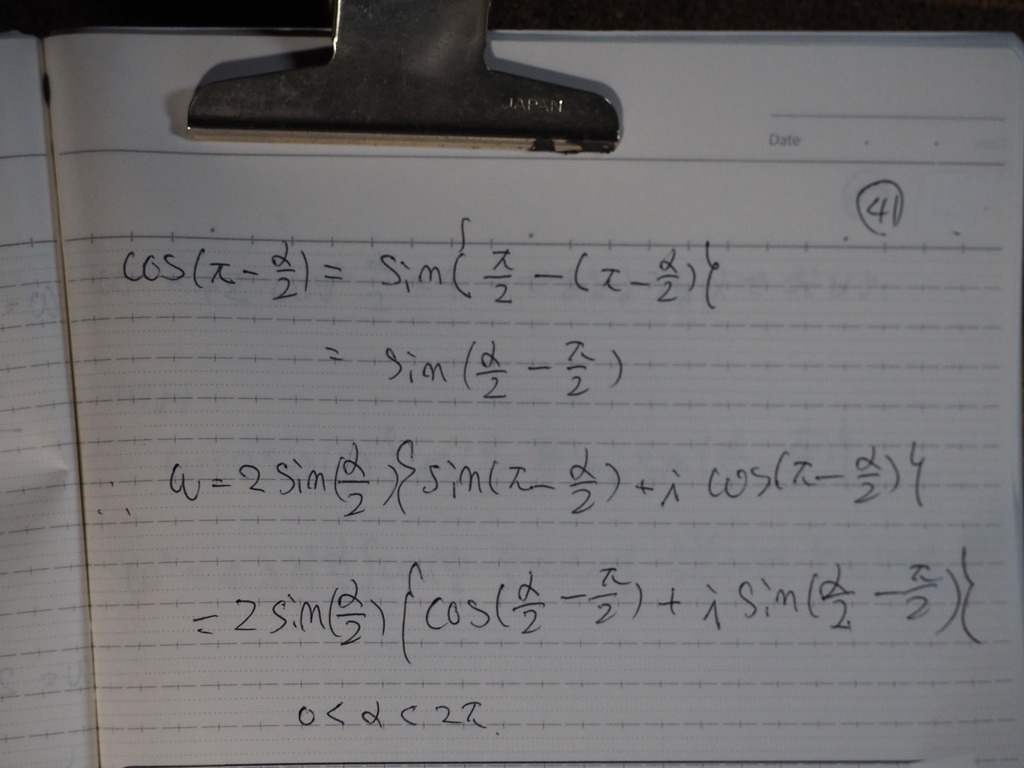 JAPAN
Date
41
cos(π - α/2) = sin{π/2 - (π - α/2)}
= sin(α/2 - π/2)
∴ ω = 2 sin(α/2){sin(π - α/2) + i cos(π - α/2)}
= 2 sin(α/2){cos(α/2 - π/2) + i sin(α/2 - π/2)}
0 < α < 2π